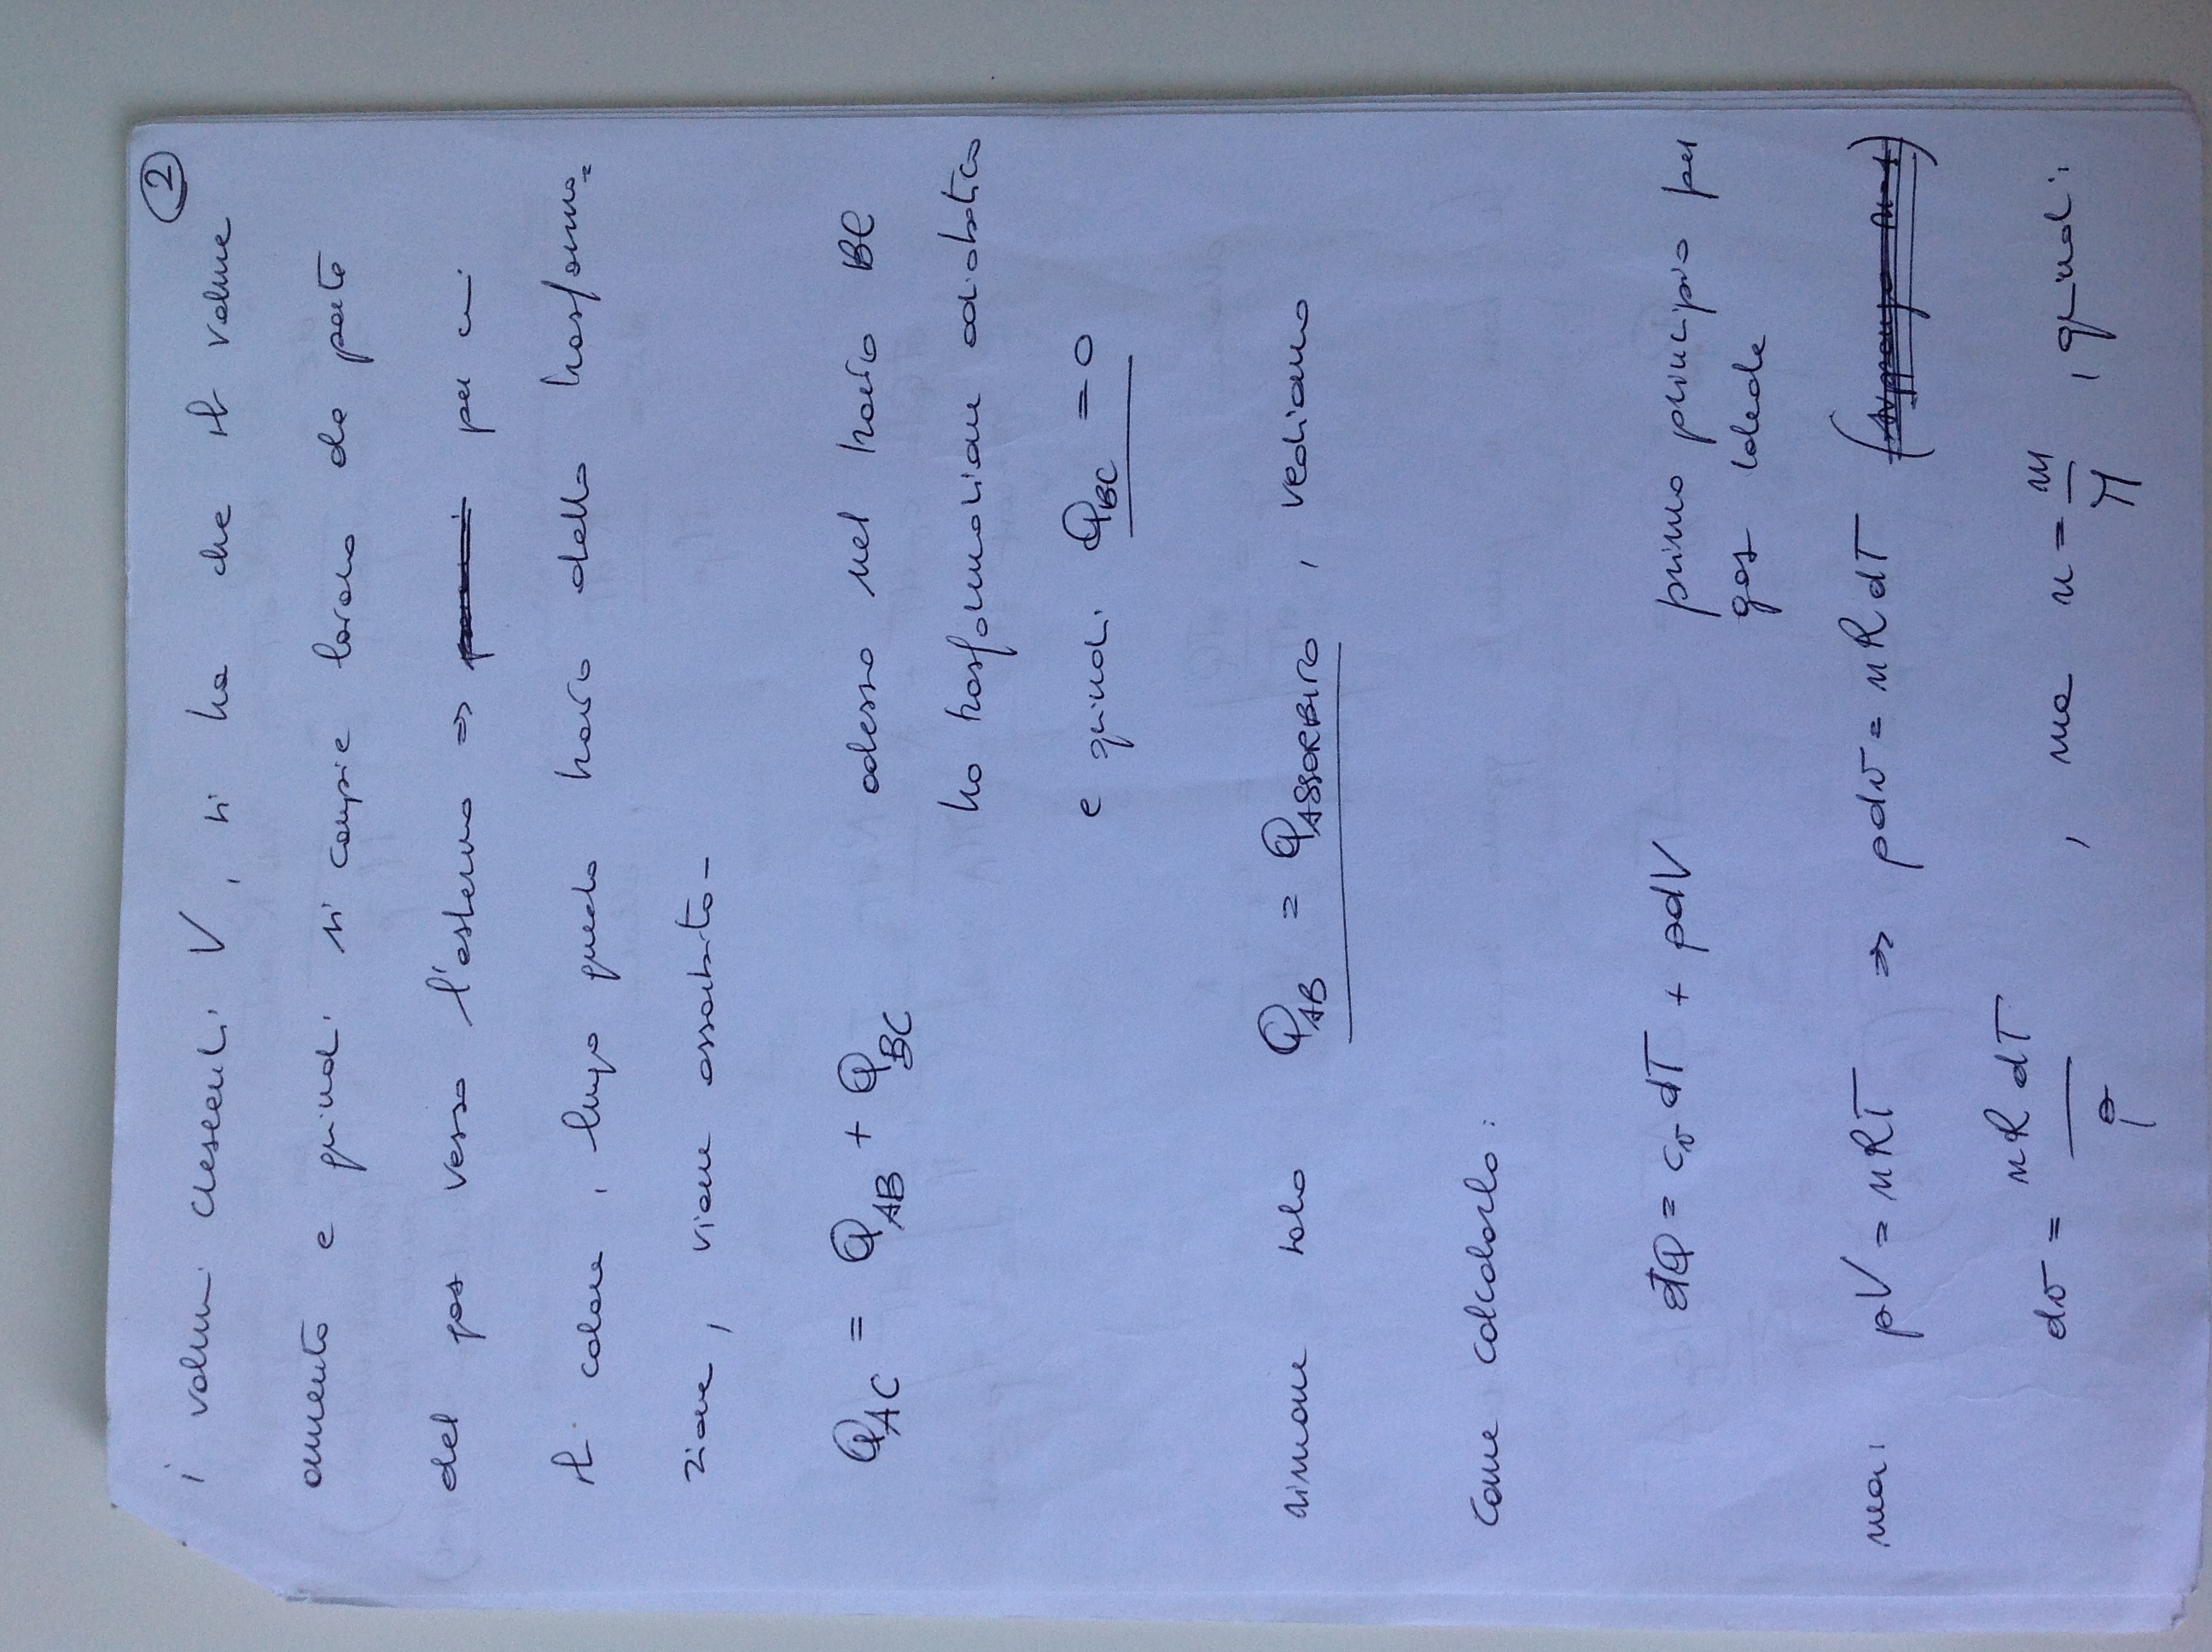 2
i volumi crescenti V, si ha che il volume
aumenta e quindi si compie lavoro da parte
del gas verso l'esterno ⇒ per cui
il calore, lungo questo tratto della trasforma=
zione, viene assorbito-
Q_AC = Q_AB + Q_BC adesso nel tratto BC
ho trasformazione adiabatica
e quindi Q_BC = 0
rimane solo Q_AB = Q_ASSORBITO, vediamo
come calcolarlo:
đQ = c_v dT + pdV primo principio per
gas ideale
ma: pV = nRT ⇒ pdv = nR dT (suppongo n=1)
dv = nR dT / p , ma n = m / M , quindi: